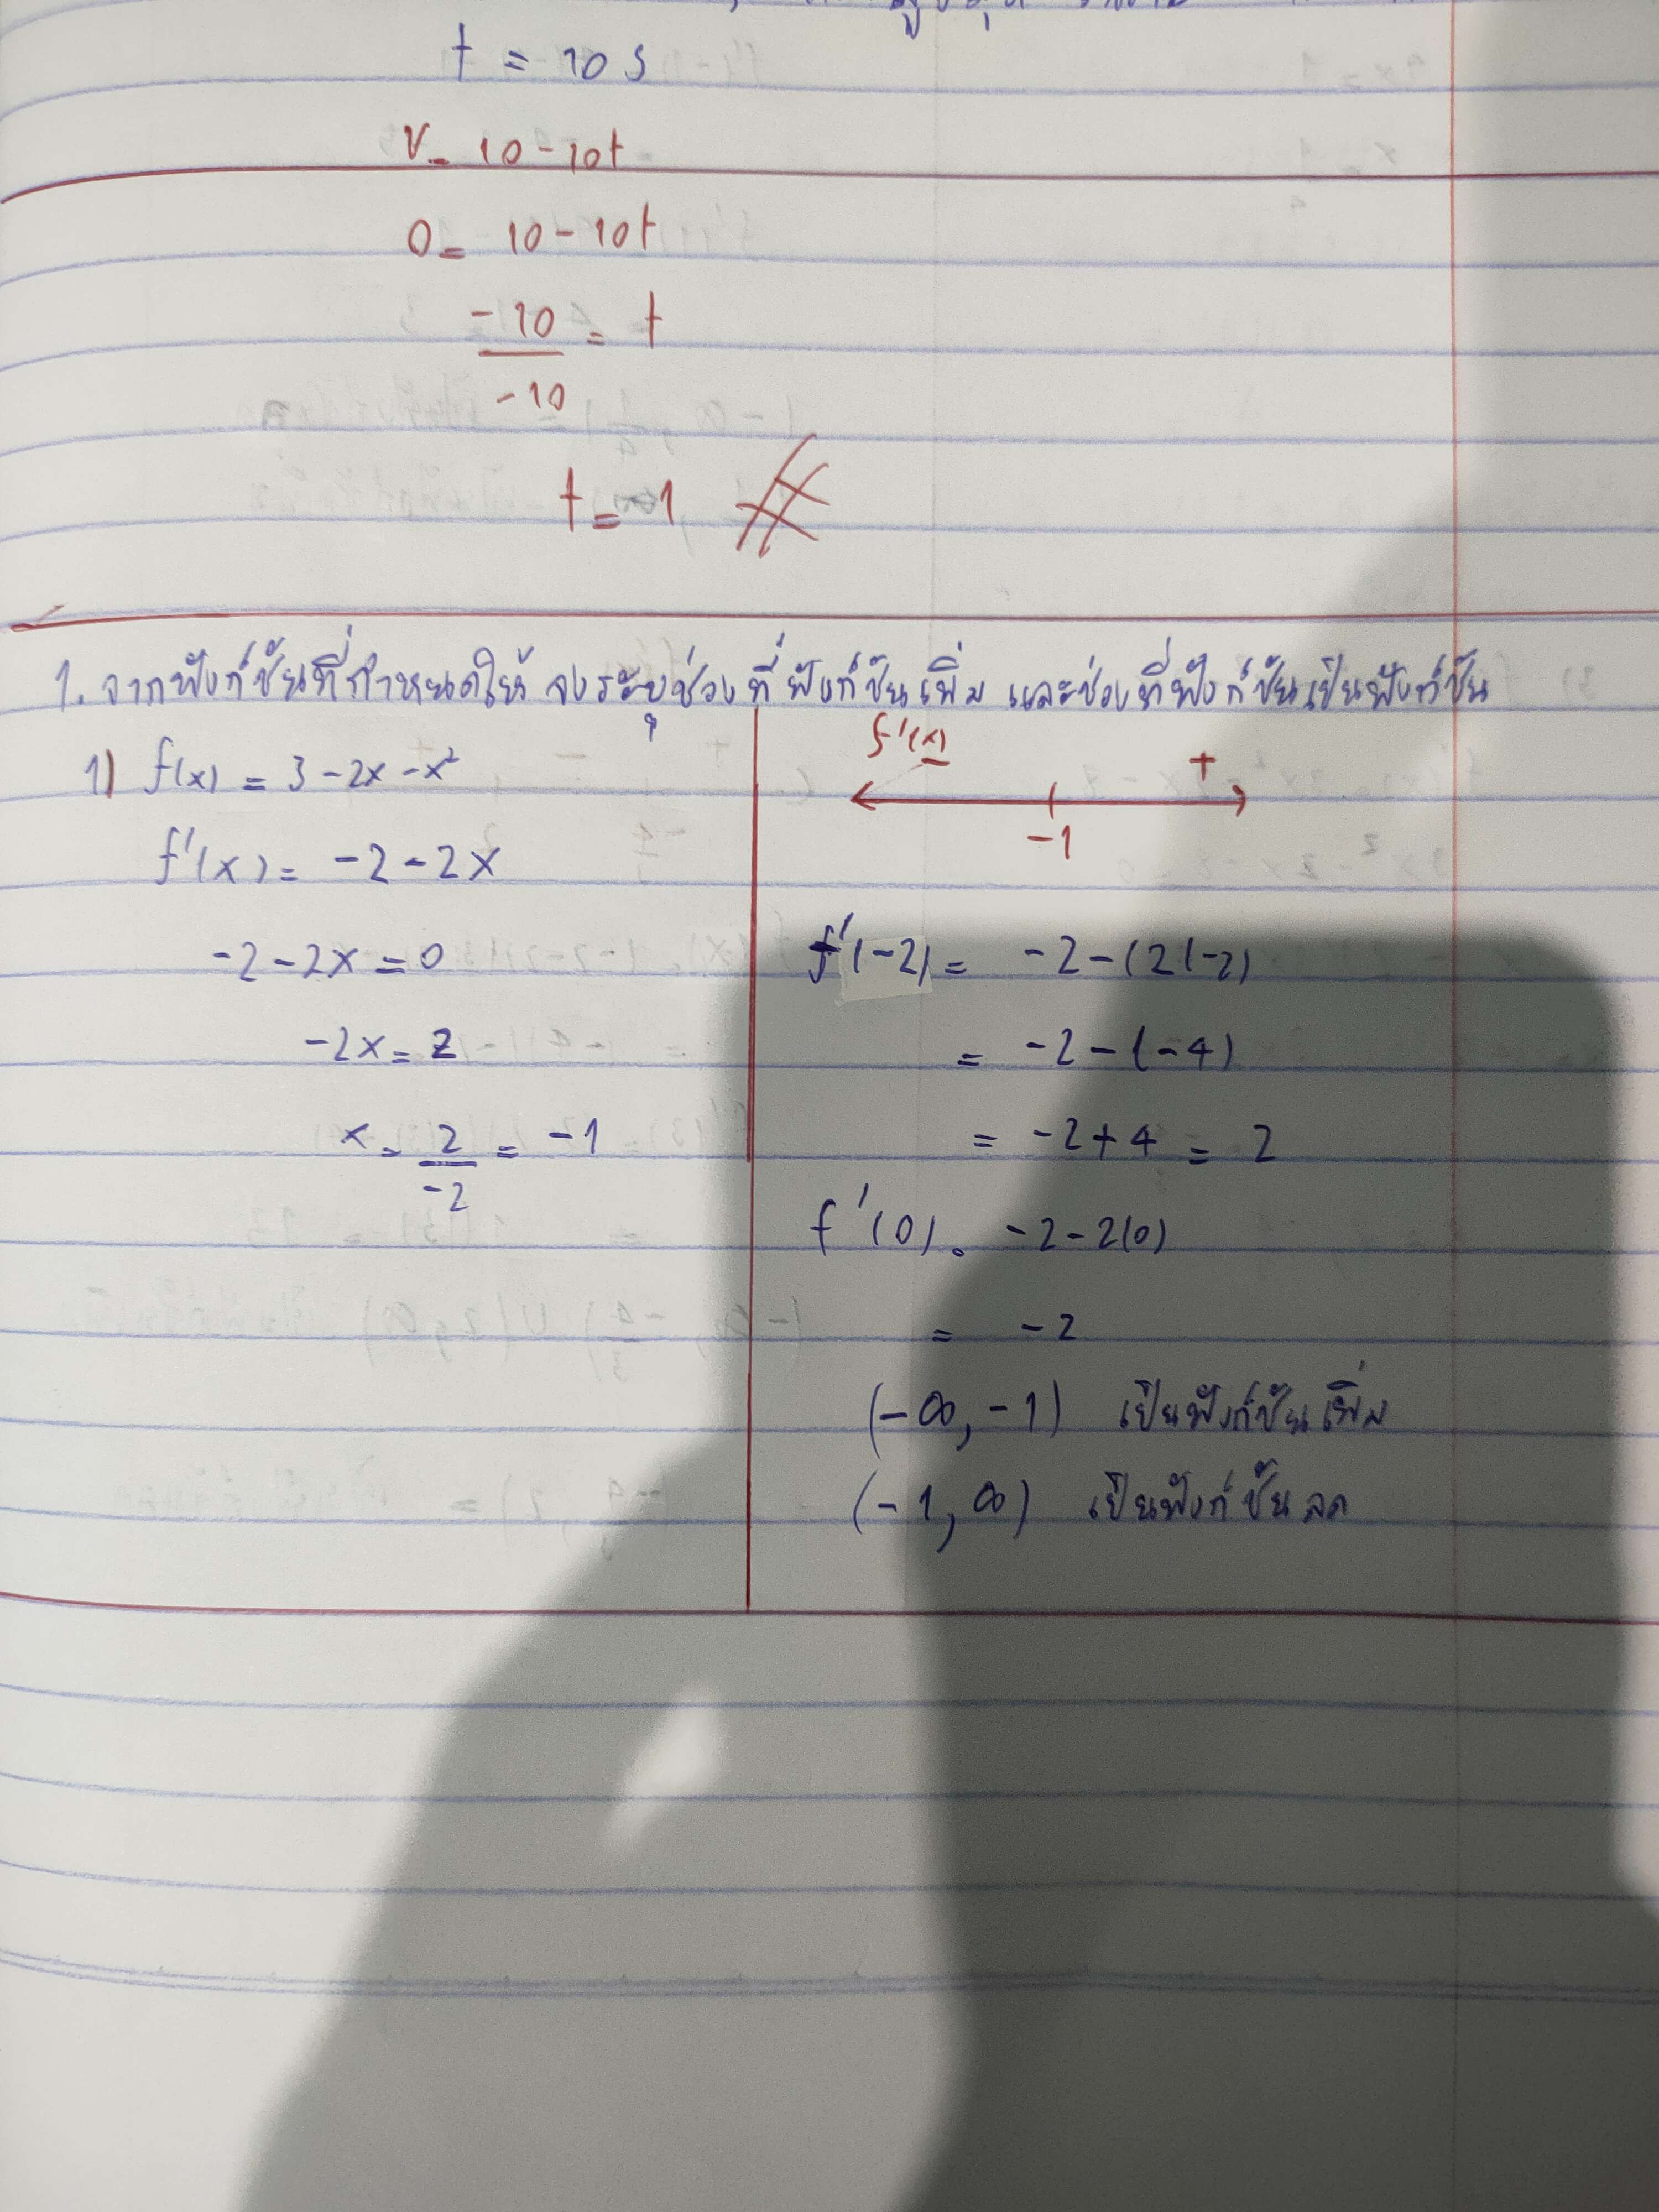 t = 10 s
v = 10 - 10t
0 = 10 - 10t
-10 = t
-10
t = 1
1. จากฟังก์ชันที่กำหนดให้ จงระบุช่วงที่ฟังก์ชันเพิ่ม และช่วงที่ฟังก์ชันเป็นฟังก์ชัน
1) f(x) = 3 - 2x - x²
f'(x) = -2 - 2x
-2 - 2x = 0
-2x = 2
x = 2 = -1
-2
f'(x)
- +
-1
f'(-2) = -2 - (2(-2)
= -2 - (-4)
= -2 + 4 = 2
f'(0) = -2 - 2(0)
= -2
(-∞, -1) เป็นฟังก์ชันเพิ่ม
(-1, ∞) เป็นฟังก์ชันลด